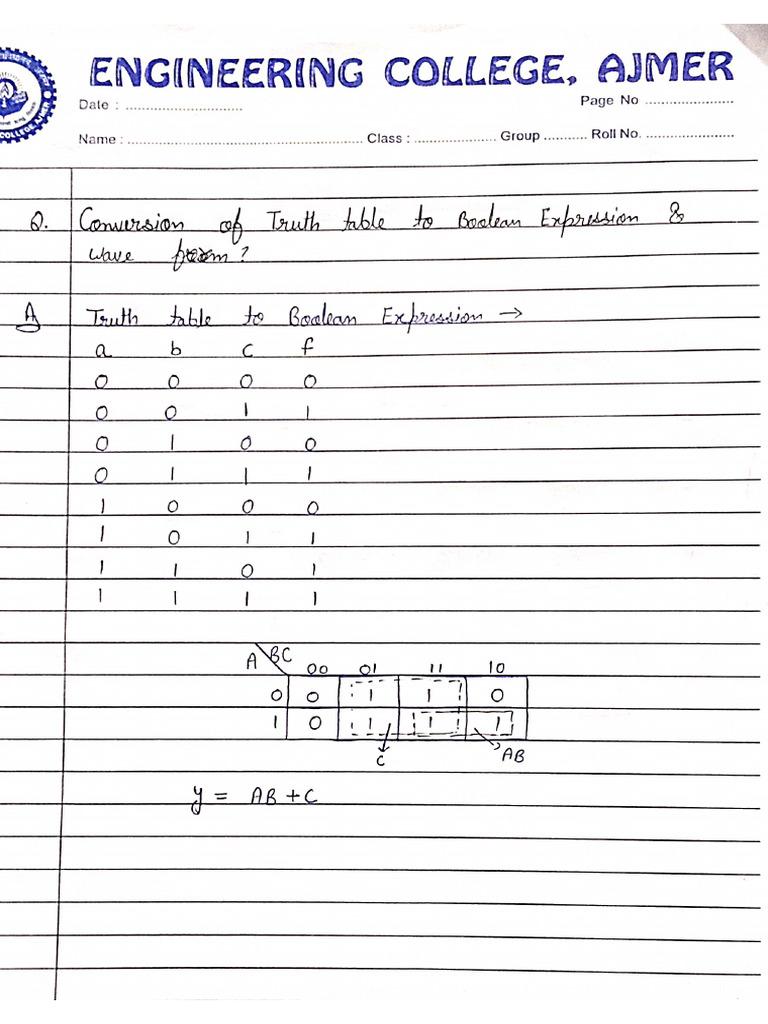 ENGINEERING COLLEGE, AJMER
Date : ............................ Page No .......................
Name : ............................................................. Class : ..................... Group ........... Roll No. .......................
Q. Conversion of Truth table to Boolean Expression &
wave form?
A Truth table to Boolean Expression →
a b c f
0 0 0 0
0 0 1 1
0 1 0 0
0 1 1 1
1 0 0 0
1 0 1 1
1 1 0 1
1 1 1 1
A BC 00 01 11 10
0 0 1 1 0
1 0 1 1 1
C AB
y = AB + C